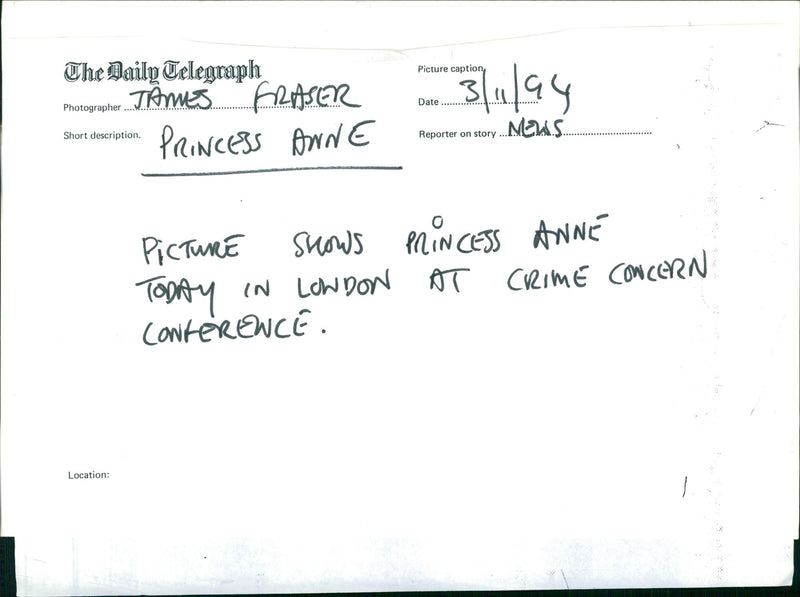 The Daily Telegraph
Picture caption
Photographer JAMES FRASER
Date 3/11/94
Short description. PRINCESS ANNE
Reporter on story NEWS
PICTURE SHOWS PRINCESS ANNE
TODAY IN LONDON AT CRIME CONCERN
CONFERENCE.
Location: